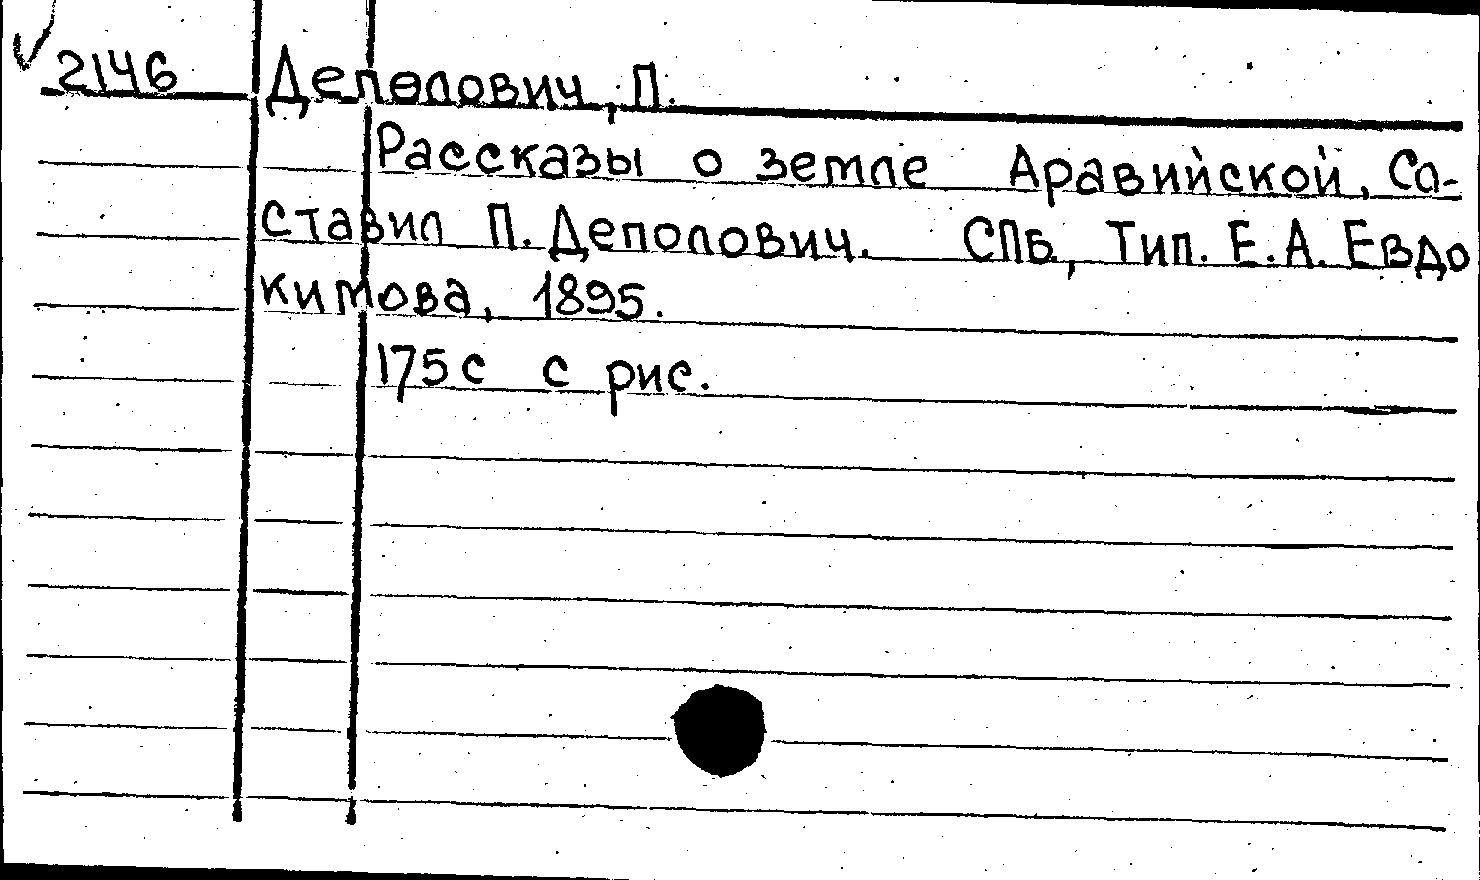 2146 Деполович, П.
Рассказы о земле Аравийской. Со-
ставил П. Деполович. СПБ, Тип. Е.А. Евдо
кимова, 1895.
175с с рис.